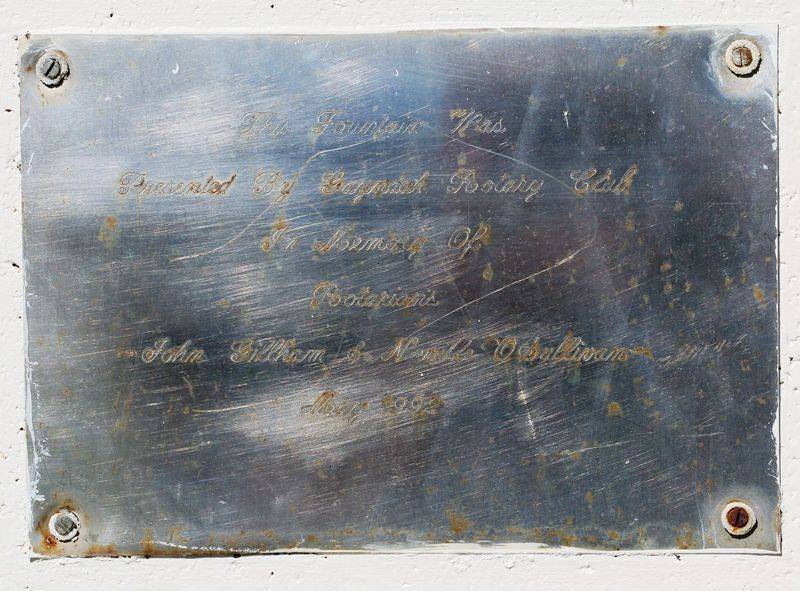 This Fountain Was
Presented By Gayndah Rotary Club
In Memory Of
Rotarians
John Gillham & Neville O'Sullivan
May